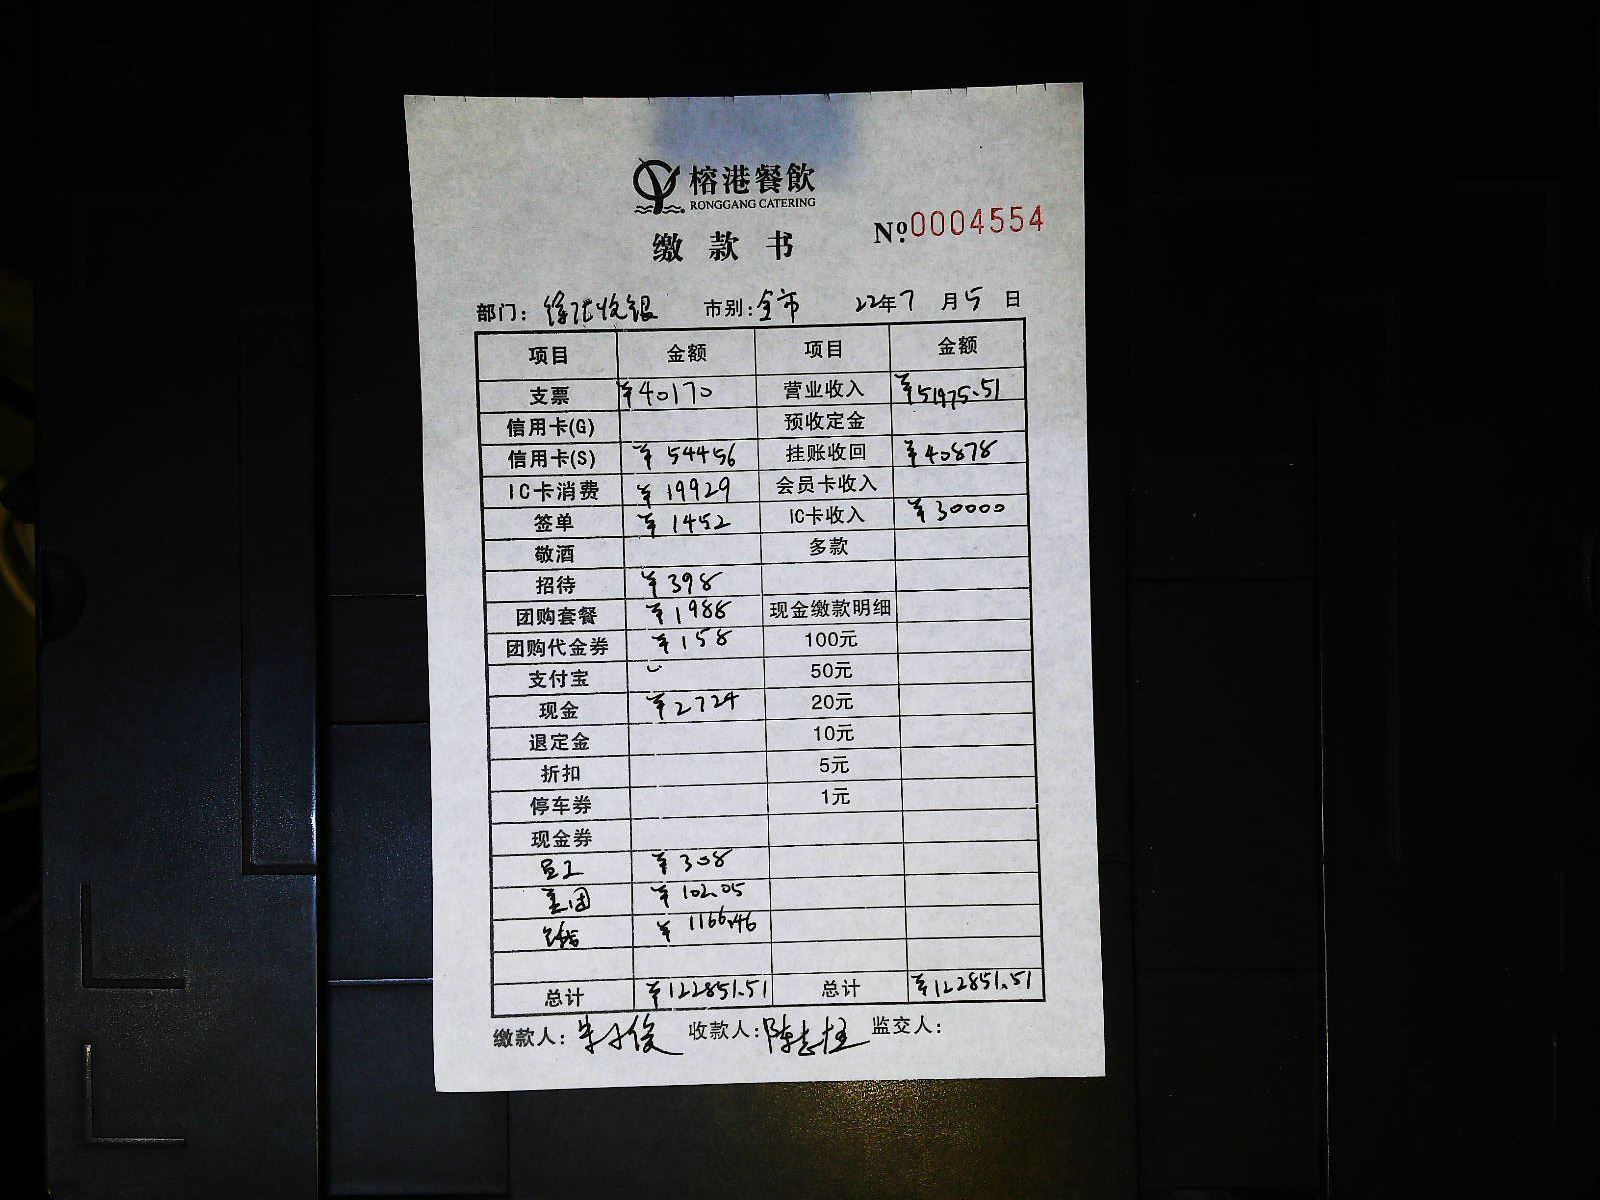 榕港餐飲
RONGGANG CATERING
缴款书
Nº.0004554
部门: 徐汇收银 市别: 全市 22年7月5日
项目 金额 项目 金额
支票 ¥40170 营业收入 ¥51975.51
信用卡(G) 预收定金
信用卡(S) ¥54456 挂账收回 ¥40878
IC卡消费 ¥19929 会员卡收入
签单 ¥1452 IC卡收入 ¥30000
敬酒 多款
招待 ¥398
团购套餐 ¥1988 现金缴款明细
团购代金券 ¥158 100元
支付宝 50元
现金 ¥2724 20元
退定金 10元
折扣 5元
停车券 1元
现金券
员工 ¥308
美团 ¥102.05
¥1166.46
总计 ¥122851.51 总计 ¥122851.51
缴款人: 收款人: 监交人: